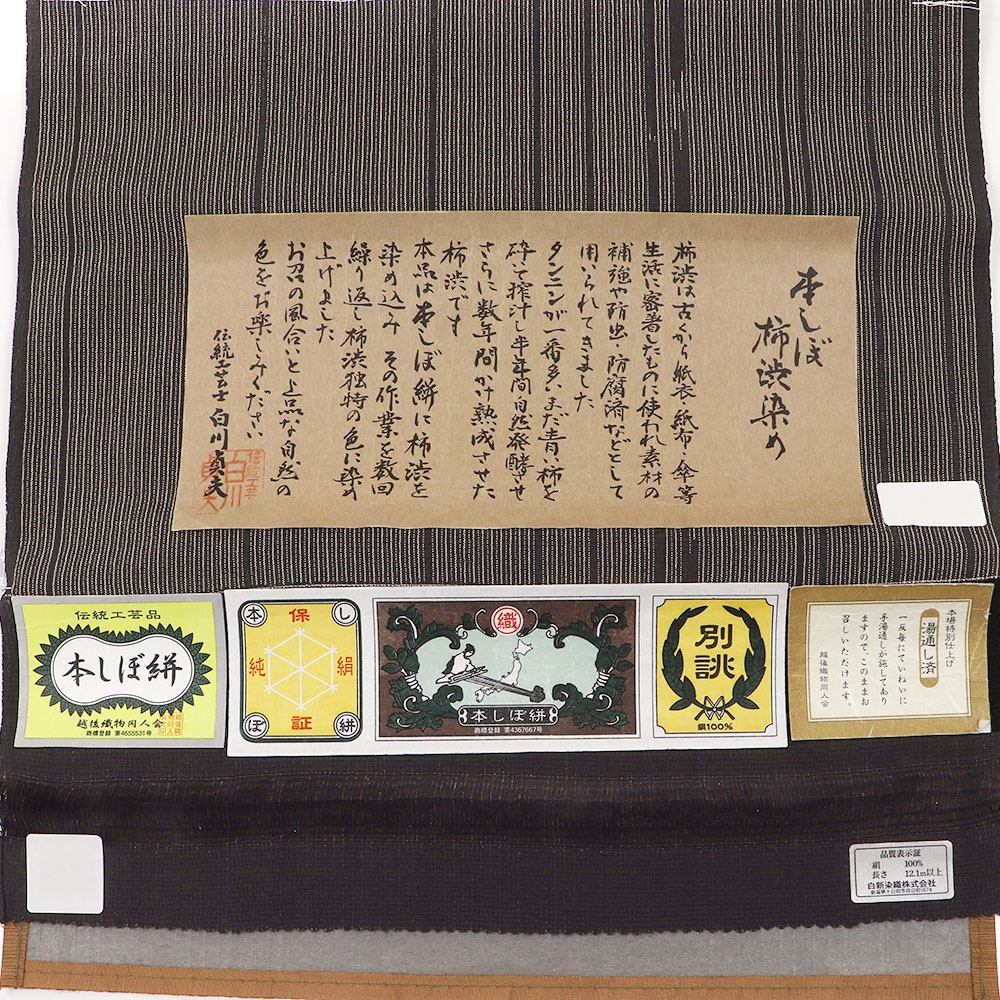 本しぼ
柿渋染め
柿渋は古くから紙衣・紙布・傘等
生活に密着したものに使われ素材の
補強や防虫・防腐済などとして
用いられてきました
タンニンが一番多いまだ青い柿を
砕いて搾汁し半年間自然発酵させ
さらに数年間かけ熟成させた
柿渋です
本品は本しぼ絣に柿渋を
染め込み その作業を数回
繰り返し柿渋独特の色に染め
上げました
お召の風合いと上品な自然の
色をお楽しみください
伝統工芸士 白川貞夫
伝統工芸品
本しぼ絣
越後織物同人会
商標登録 第4655531号
本
保
し
純
絹
ぼ
証
絣
織
本しぼ絣
商標登録 第4367667号
別
誂
絹100%
本場特別仕上げ
湯通し済
一反毎にていねいに
手湯通しが施してあり
ますので、このままお
召しいただけます。
越後織物同人会
品質表示証
絹 100%
長さ 12.1m以上
白新染織株式会社